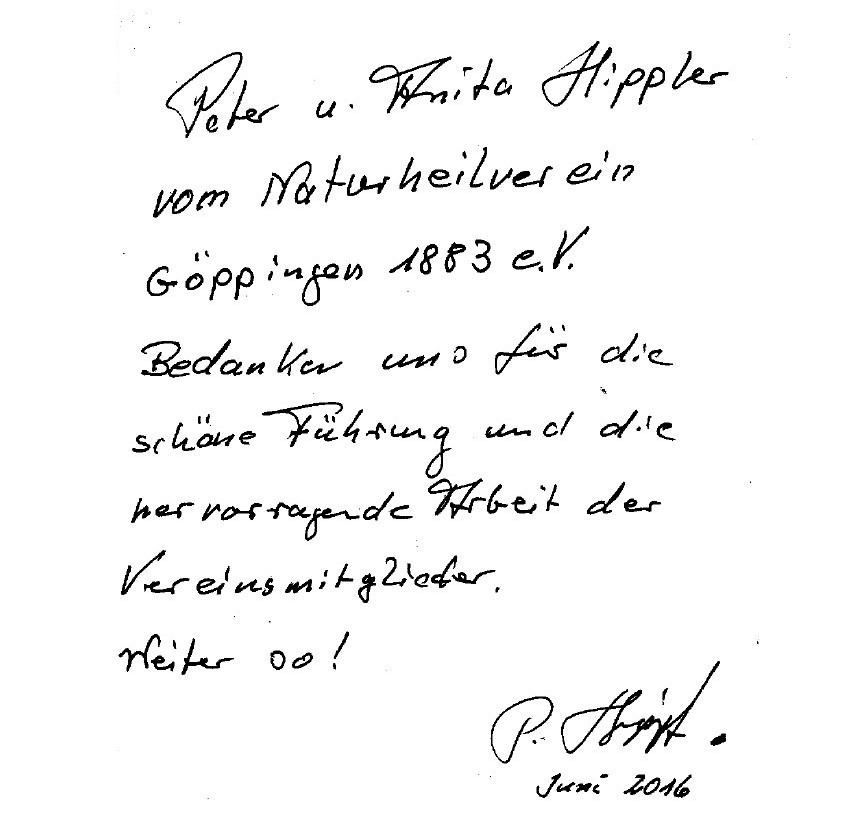 Peter u. Anita Hippler
vom Naturheilverein
Göppingen 1883 e.V.
Bedanken uns für die
schöne Führung und die
hervorragende Arbeit der
Vereinsmitglieder.
Weiter so!
P. Hippler
Juni 2016